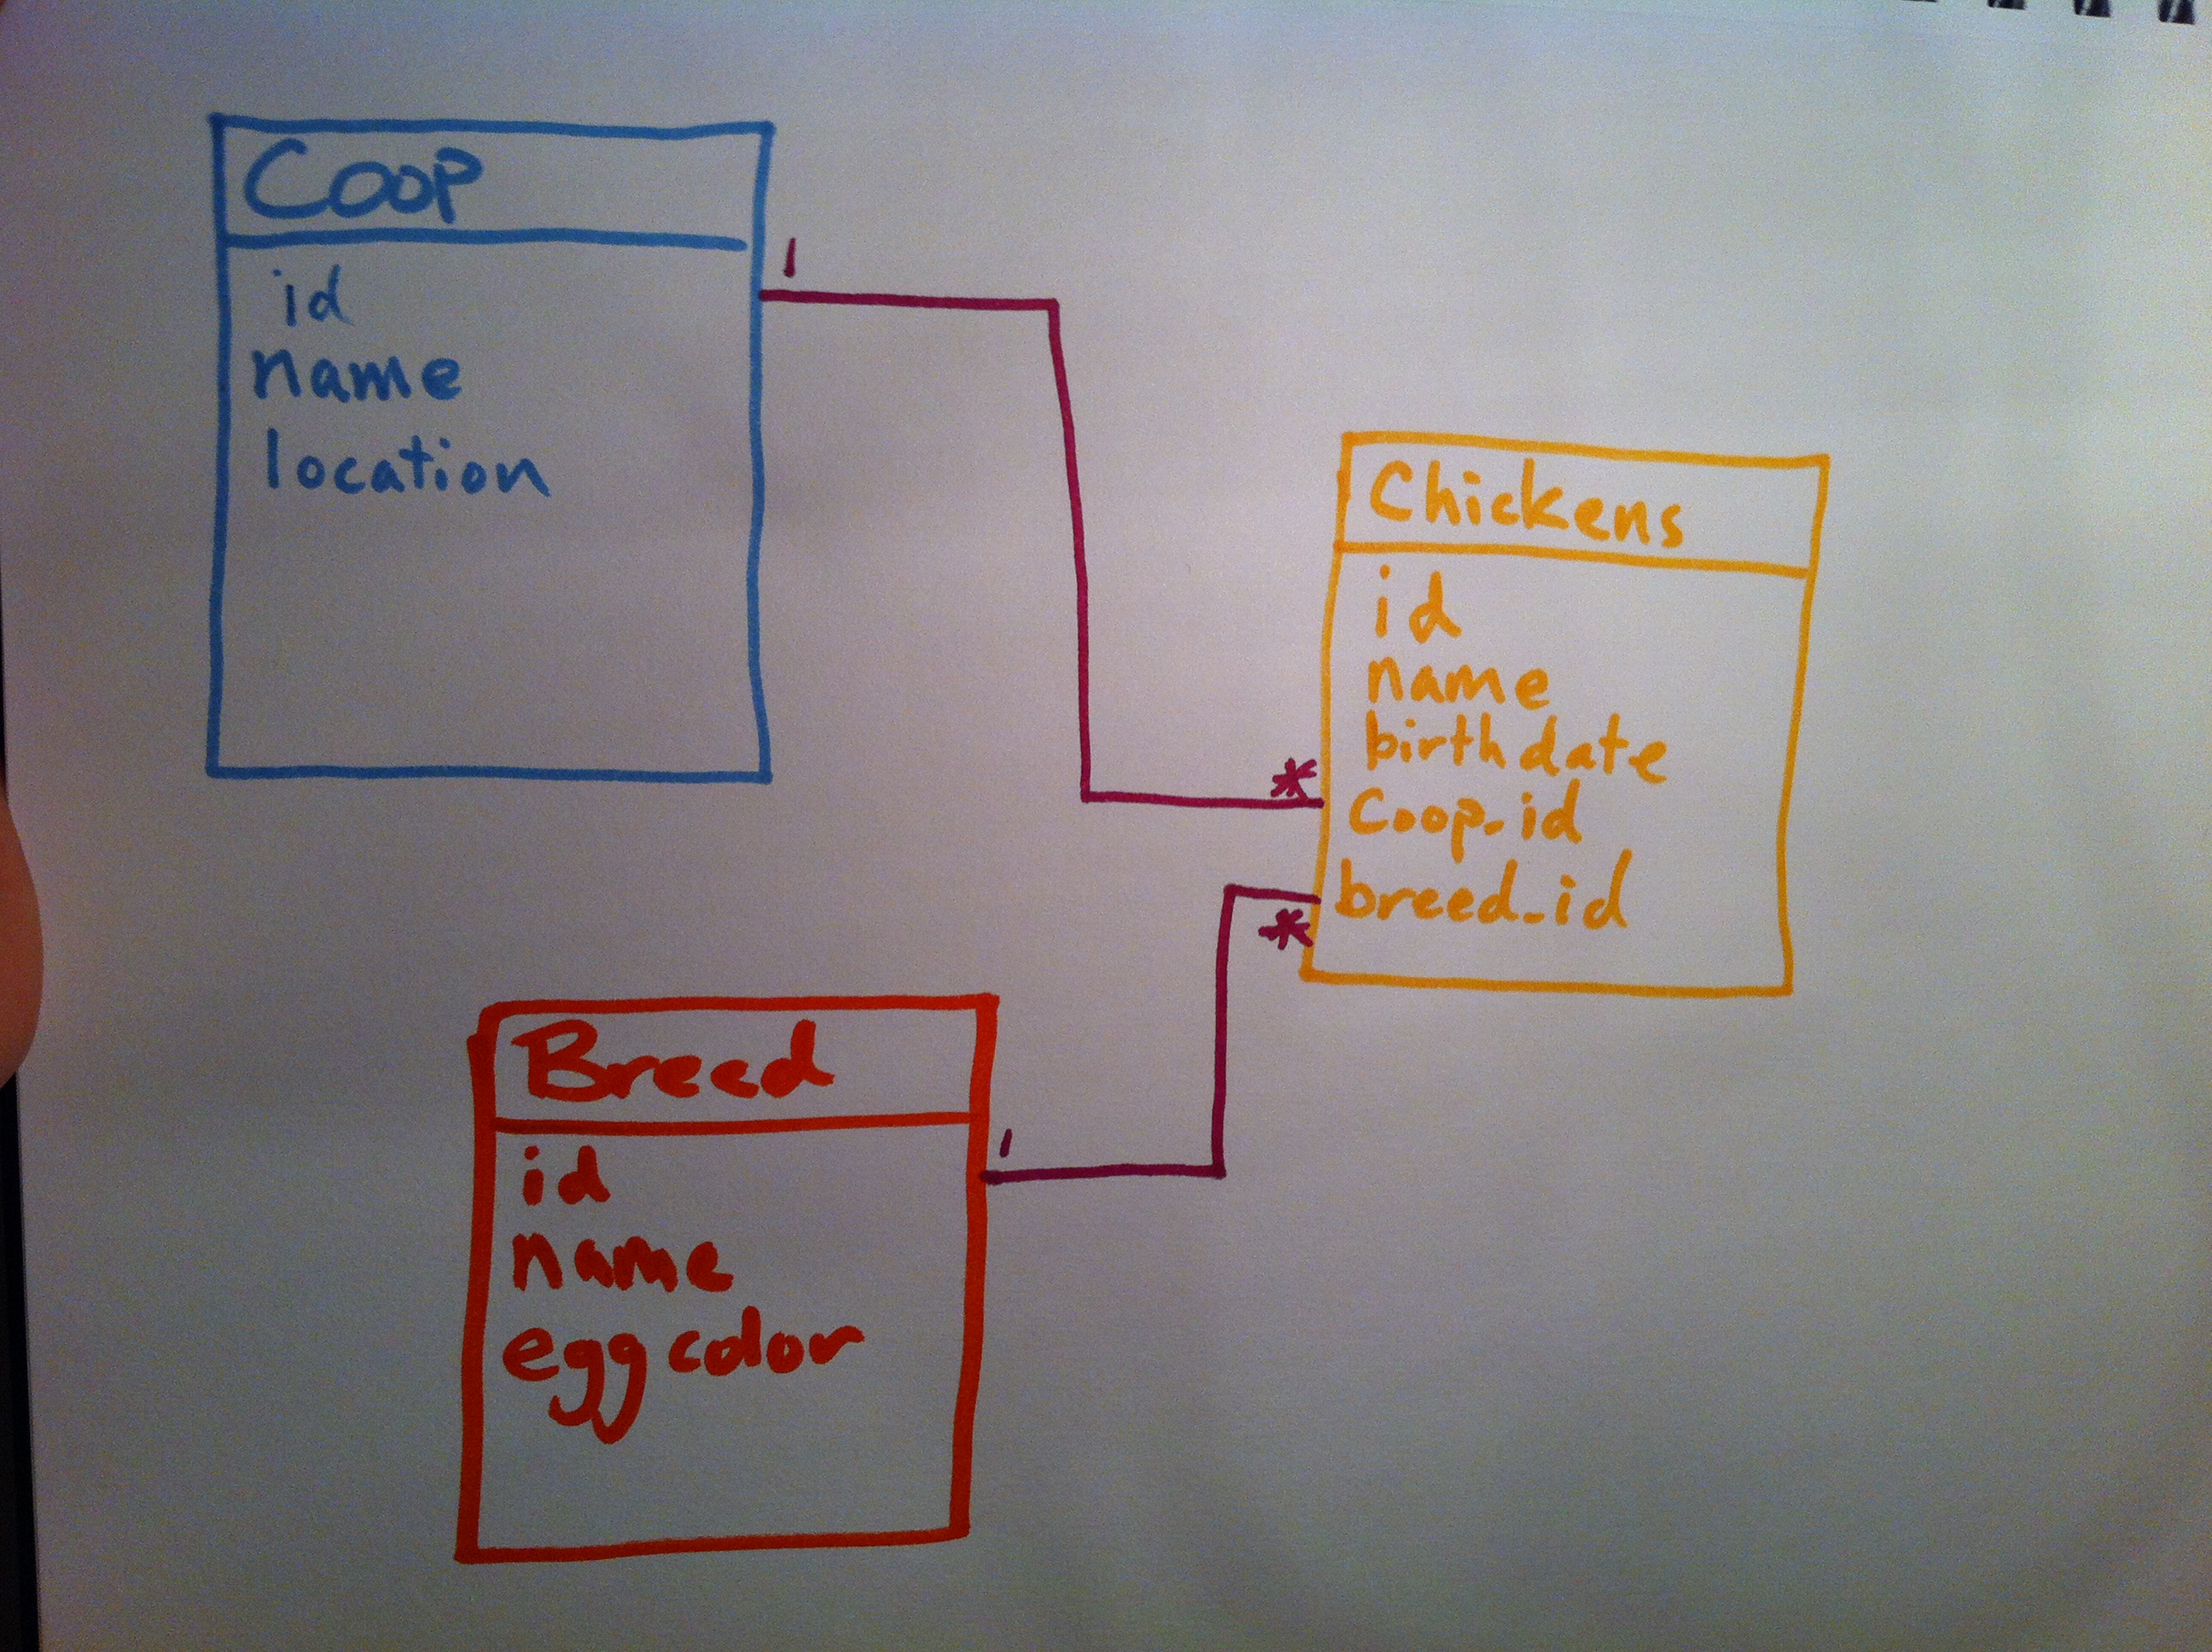 Coop
id
name
location
1
*
Chickens
id
name
birthdate
Coop_id
breed_id
*
1
Breed
id
name
egg color